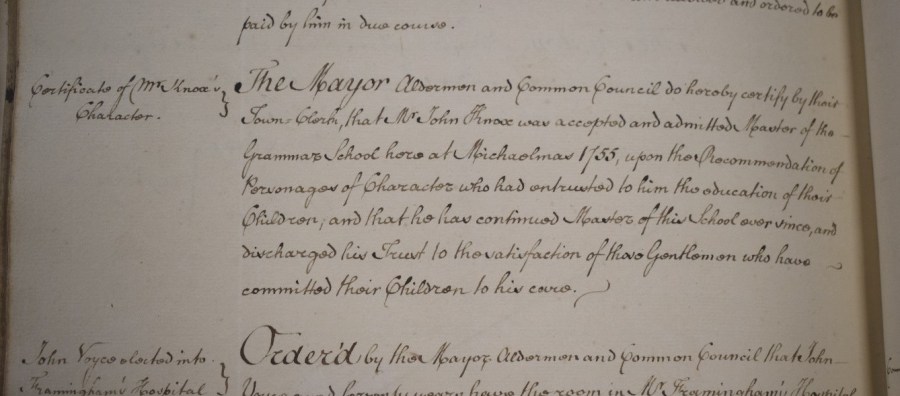 and ordered to be
paid by him in due course.
Certificate of Mr. Knox's
Character.
The Mayor Aldermen and Common Council do hereby certify by their
Town-Clerk, that Mr. John Knox was accepted and admitted Master of the
Grammar School here at Michaelmas 1755, upon the Recommendation of
Personages of Character who had entrusted to him the education of their
Children, and that he has continued Master of this School ever since, and
discharged his Trust to the satisfaction of those Gentlemen who have
committed their Children to his care.
John Voyce elected into
Framingham's Hospital
Order'd by the Mayor Aldermen and Common Council that John
Voyce aged seventy years have the room in Mr. Framingham's Hospital